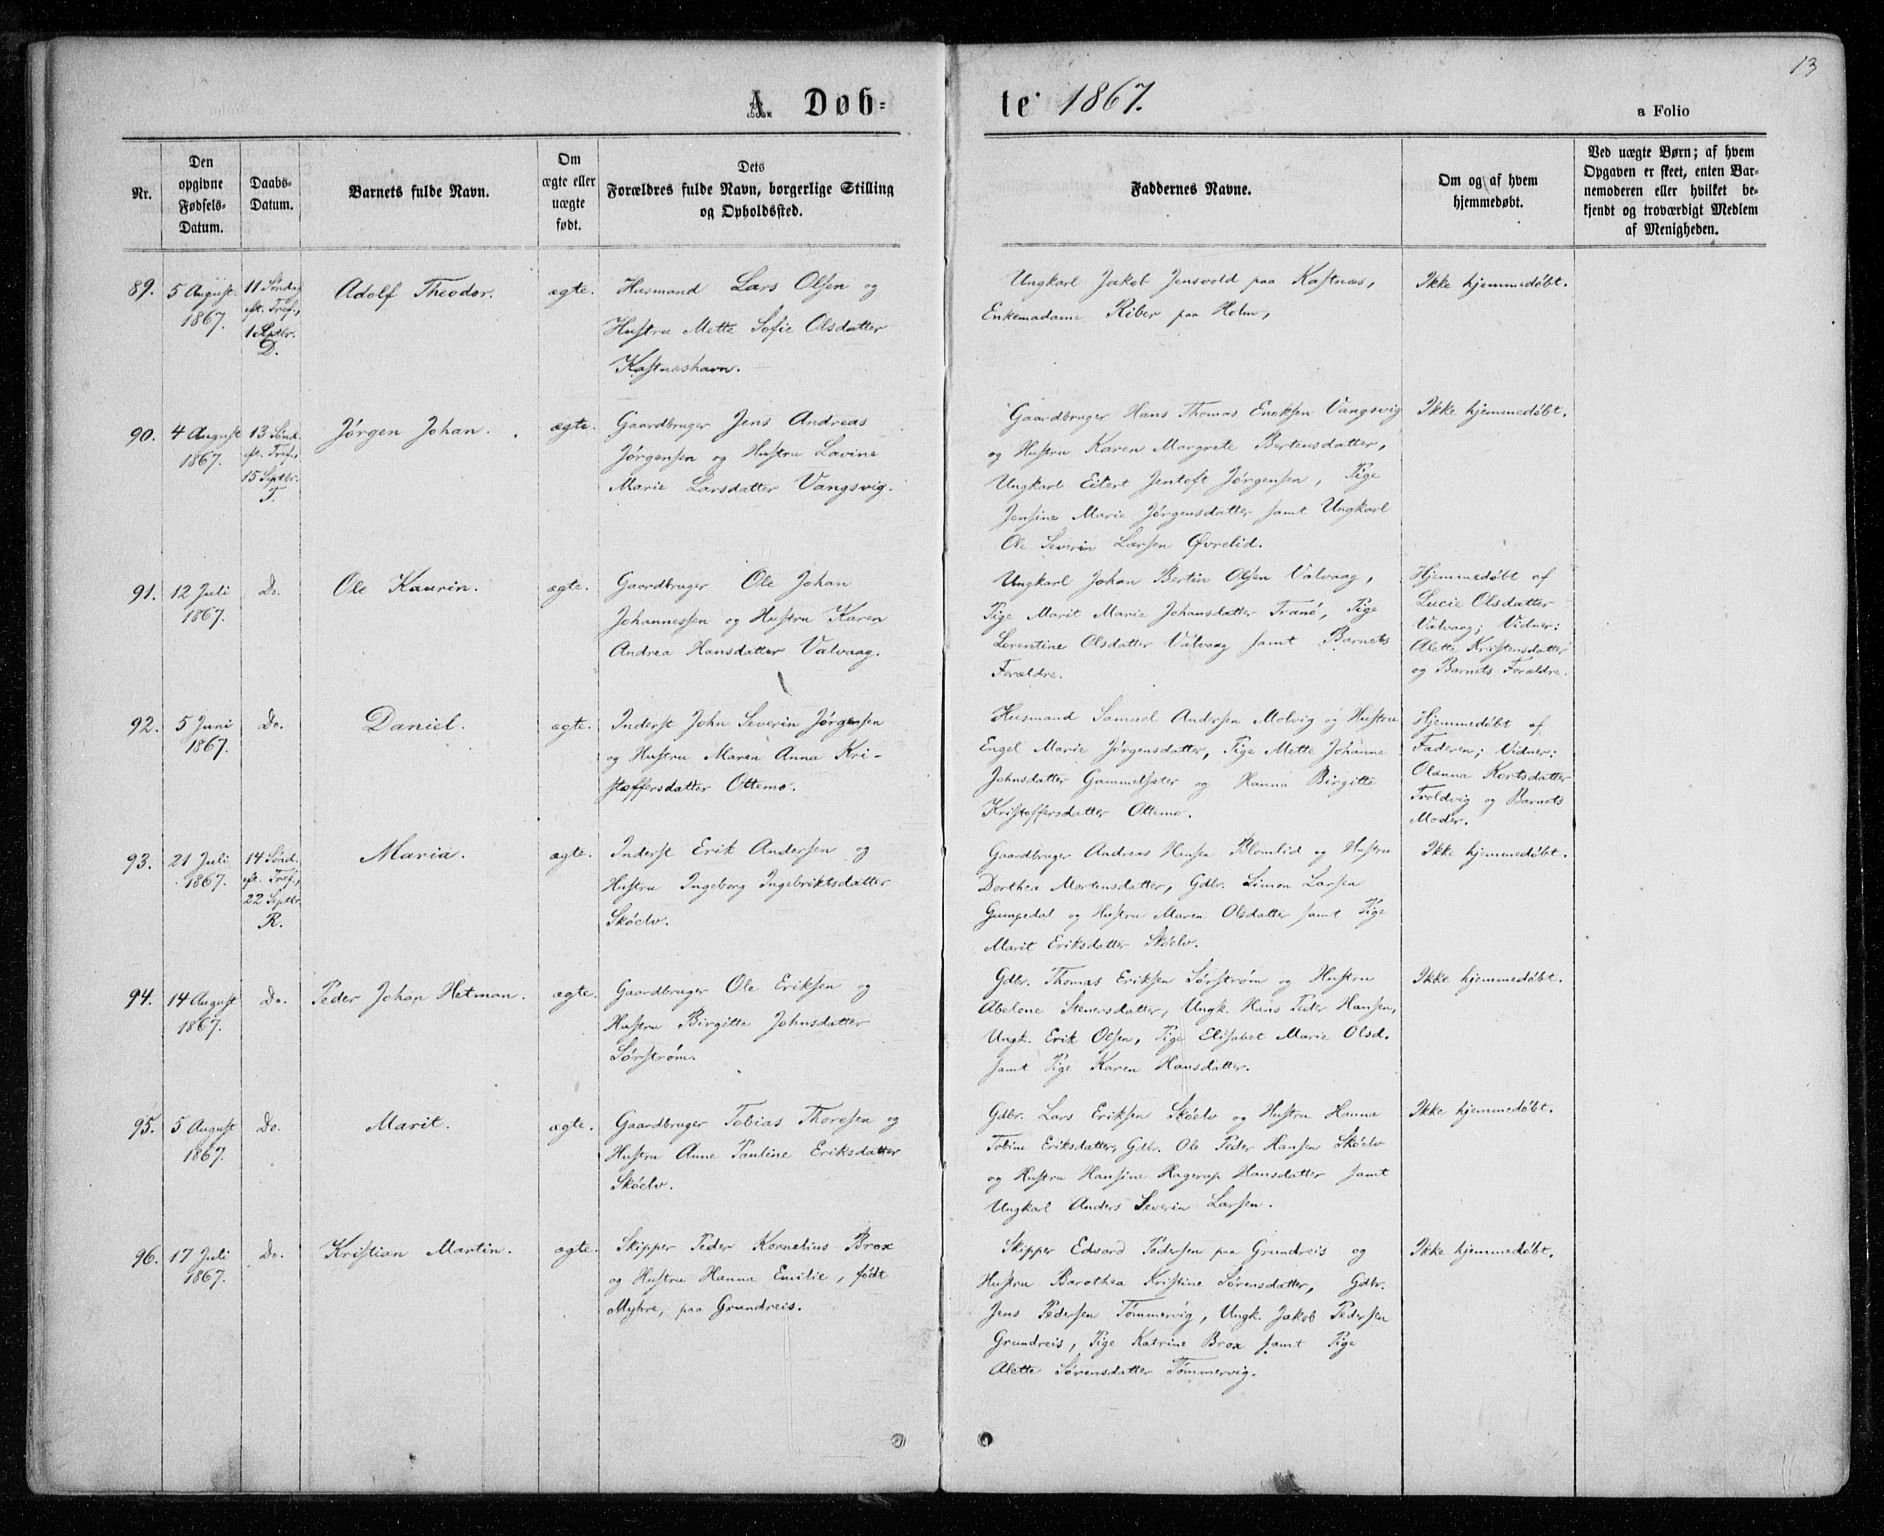 13
A. Døb=
te 1867.
a Folio
Nr.
Den
opgivne
Fødsels-
Datum.
Daabs-
Datum.
Barnets fulde Navn.
Om
ægte eller
uægte
født.
Dets
Forældres fulde Navn, borgerlige Stilling
og Opholdssted.
Faddernes Navne.
Om og af hvem
hjemmedøbt.
Ved uægte Børn; af hvem
Opgaven er skeet, enten Bar-
nemoderen eller hvilket be-
kjendt og troværdigt Medlem
af Menigheden.
89.
5 August
1867.
11 Søndag
eft. Tref.,
1 Septbr.
D.
Adolf Theodor.
ægte.
Husmand Lars Olsen og
Hustru Mette Sofie Olsdatter
Kastneshavn.
Ungkarl Jakob Jensvold paa Kastnes,
Enkemadame Riber paa Holm,
Ikke hjemmedøbt.
90.
4 August
1867.
13 Sønd.
eft. Tref.,
15 Septbr.
T.
Jørgen Johan.
ægte.
Gaardbruger Jens Andreas
Jørgensen og Hustru Lavine
Marie Larsdatter Vangsvig.
Gaardbruger Hans Thomas Enoksen Vangsvig
og Hustru Karen Margrete Bertensdatter,
Ungkarl Eilert Jentoft Jørgensen, Pige
Jensine Marie Jørgensdatter samt Ungkarl
Ole Severin Larsen Øvrelid.
Ikke hjemmedøbt.
91.
12 Juli
1867.
Do.
Ole Kaurin.
ægte.
Gaardbruger Ole Johan
Johannessen og Hustru Karen
Andrea Hansdatter Valvaag.
Ungkarl Johan Bertin Olsen Valvaag,
Pige Marit Marie Johansdatter Tranø, Pige
Lorentine Olsdatter Valvaag samt Barnets
Forældre.
Hjemmedøbt af
Lucie Olsdatter
Valvaag; Vidner:
Alette Kristensdatter
og Barnets Forældre.
92.
5 Juni
1867.
Do.
Daniel.
ægte.
Inderst John Severin Jørgensen
og Hustru Maren Anna Kri-
stoffersdatter Ottemo.
Husmand Samuel Andersen Molvig og Hustru
Engel Marie Jørgensdatter, Pige Mette Johanne
Johnsdatter Gammelsæter og Hanna Birgitte
Kristoffersdatter Ottemo.
Hjemmedøbt af
Faderen; Vidner:
Olanna Kortsdatter
Troldvig og Barnets
Moder.
93.
21 Juli
1867.
14 Sønd.
eft. Tref.,
22 Septbr.
R.
Maria.
ægte.
Inderst Erik Andersen og
Hustru Ingeborg Ingebriktsdatter
Skøelv.
Gaardbruger Andreas Hansen Blomlid og Hustru
Dorthea Mortensdatter, Gdbr. Simon Larsen
Gumpedal og Hustru Maren Olsdatter samt Pige
Marit Eriksdatter Skøelv.
Ikke hjemmedøbt.
94.
14 August
1867.
Do.
Peder Johan Hetman.
ægte.
Gaardbruger Ole Eriksen og
Hustru Birgitte Johnsdatter
Sørstrøm.
Gdbr. Thomas Eriksen Sørstrøm og Hustru
Abelone Stenersdatter, Ungk. Hans Peder Hansen,
Ungk. Erik Olsen, Pige Elisabet Marie Olsd.
samt Pige Karen Hansdatter.
Ikke hjemmedøbt.
95.
5 August
1867.
Do.
Marit.
ægte.
Gaardbruger Tobias Thoresen og
Hustru Anne Pauline Eriksdatter
Skøelv.
Gdbr. Lars Eriksen Skøelv og Hustru Hanna
Tobine Eriksdatter, Gdbr. Ole Peder Hansen Skøelv
og Hustru Hansine Hagerup Hansdatter samt
Ungkarl Anders Severin Larsen.
Ikke hjemmedøbt.
96.
17 Juli
1867.
Do.
Kristian Martin.
ægte.
Skipper Peder Kornelius Brox
og Hustru Hanna Emilie, født
Myhre, paa Grundreis.
Skipper Edvard Pedersen paa Grundreis og
Hustru Barothea Kristine Sørensdatter, Gdbr.
Jens Pedersen Tømmervig, Ungk. Jakob Pedersen
Grundreis, Pige Katrine Brox samt Pige
Alette Sørensdatter Tømmervig.
Ikke hjemmedøbt.